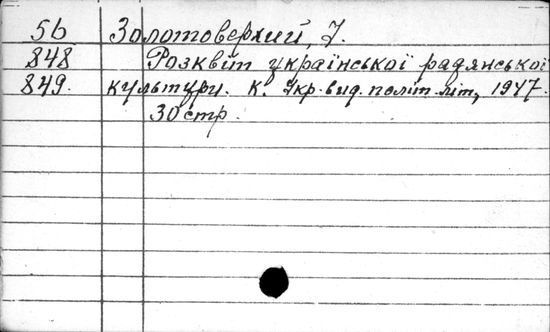 5б Золотоверхий, І.
848 Розквіт української радянської
849. культури. К. Укр. вид. політ. літ., 1947.
30 стр.